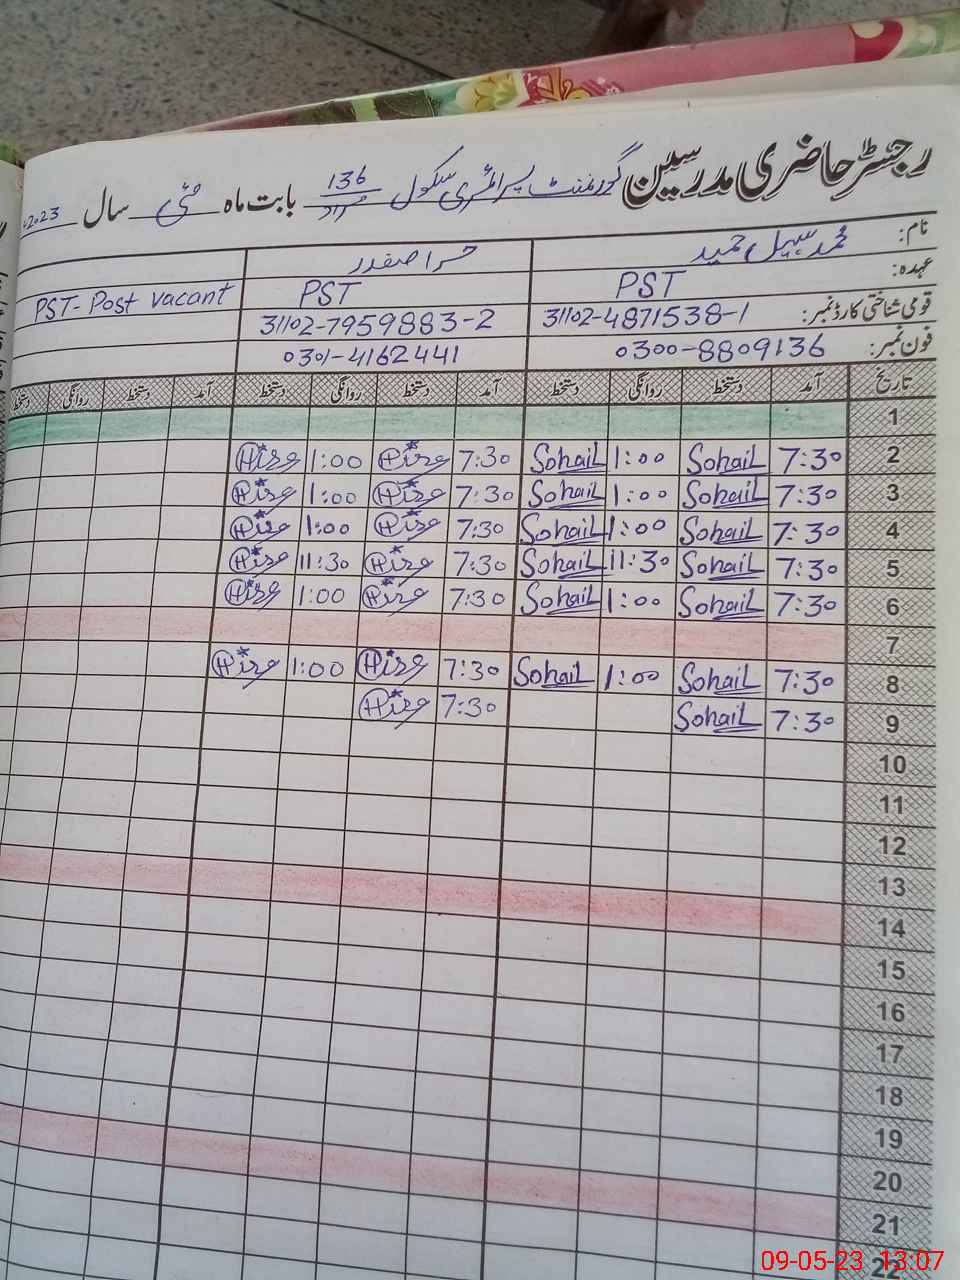 رجسٹر حاضری مدرسین گورنمنٹ پرائمری سکول 136 مراد بابت ماہ مئی سال 2023
نام: محمد سہیل حمید حرا صفدر
عہدہ: PST PST PST- Post vacant
قومی شناختی کارڈ نمبر: 31102-4871538-1 31102-7959883-2
فون نمبر: 0300-8809136 0301-4162441
تاریخ آمد دستخط روانگی دستخط آمد دستخط روانگی دستخط آمد دستخط روانگی دستخط
1
2 7:30 Sohail 1:00 Sohail 7:30 Hira 1:00 Hira
3 7:30 Sohail 1:00 Sohail 7:30 Hira 1:00 Hira
4 7:30 Sohail 1:00 Sohail 7:30 Hira 1:00 Hira
5 7:30 Sohail 11:30 Sohail 7:30 Hira 11:30 Hira
6 7:30 Sohail 1:00 Sohail 7:30 Hira 1:00 Hira
7
8 7:30 Sohail 1:00 Sohail 7:30 Hira 1:00 Hira
9 7:30 Sohail 7:30 Hira
10
11
12
13
14
15
16
17
18
19
20
21
22
09-05-23 13:07